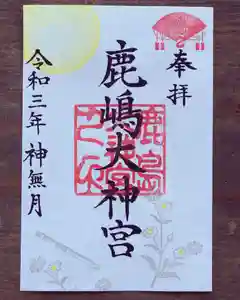 奉拝
鹿嶋大神宮
令和三年 神無月